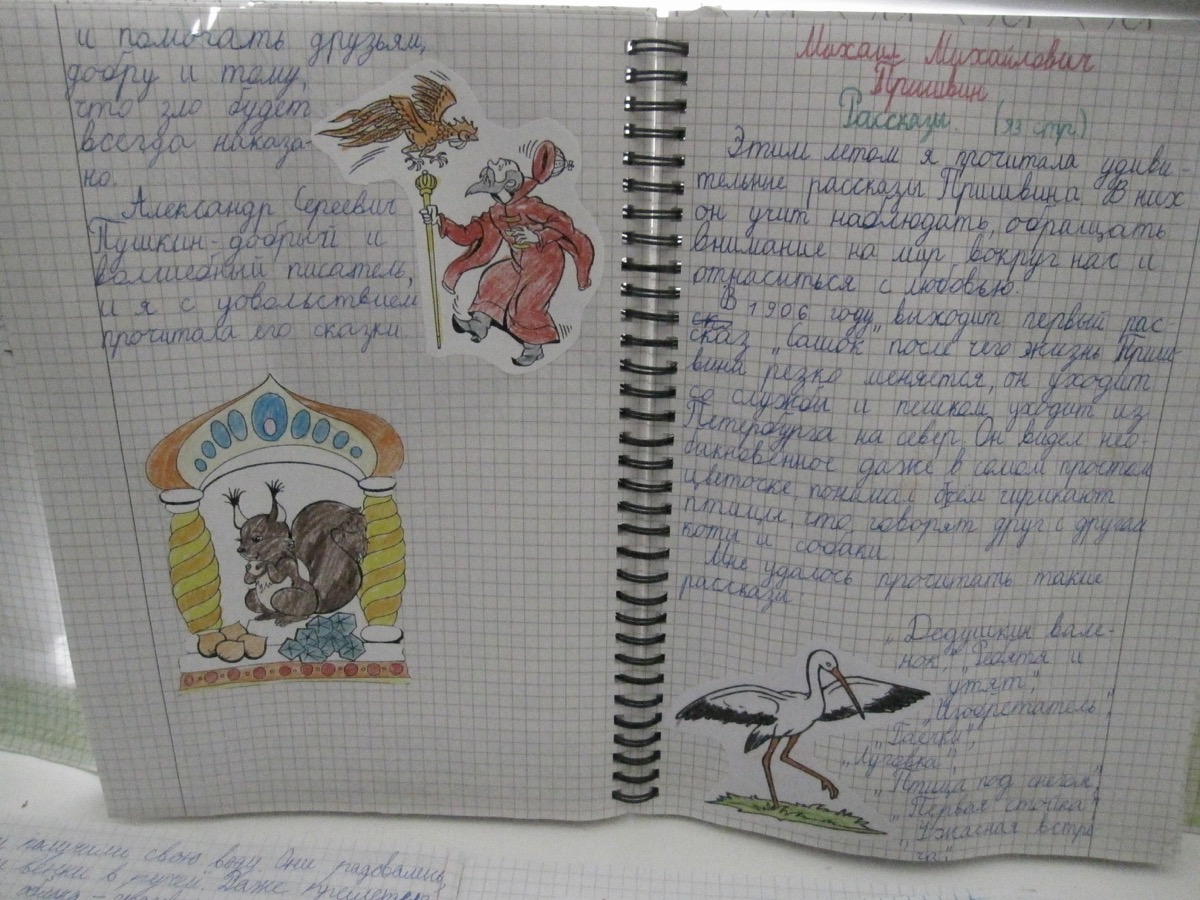 и помогать друзьям,
добру и тому,
что зло будет
всегда наказа-
но.
Александр Сергеевич
Пушкин - добрый и
волшебный писатель,
и я с удовольствием
прочитала его сказки
Михаил Михайлович
Пришвин
Рассказы. (93 стр.)
Этим летом я прочитала удиви-
тельные рассказы Пришвина. В них
он учит наблюдать, обращать
внимание на мир вокруг нас и
отнаситься с любовью.
В 1906 году выходит первый рас-
сказ „Сашок" после чего жизнь Приш-
вина резко меняется, он уходит
со службой и пешком уходит из
Петербурга на север. Он видел нео-
быкновенное даже в самом простом
цветочке, понимал о чём чирикают
птицы, что говорят друг с другом
коты и собаки.
Мне удалось прочитать такие
рассказы:
„Дедушкин вале-
нок", „Ребята и
утята",
„Изобретатель",
„Гаечки",
„Луговка",
„Птица под снегом",
„Первая стойка",
„Ужасная встре
ча".
получили свою воду. Они радовались,
в ручей. Даже